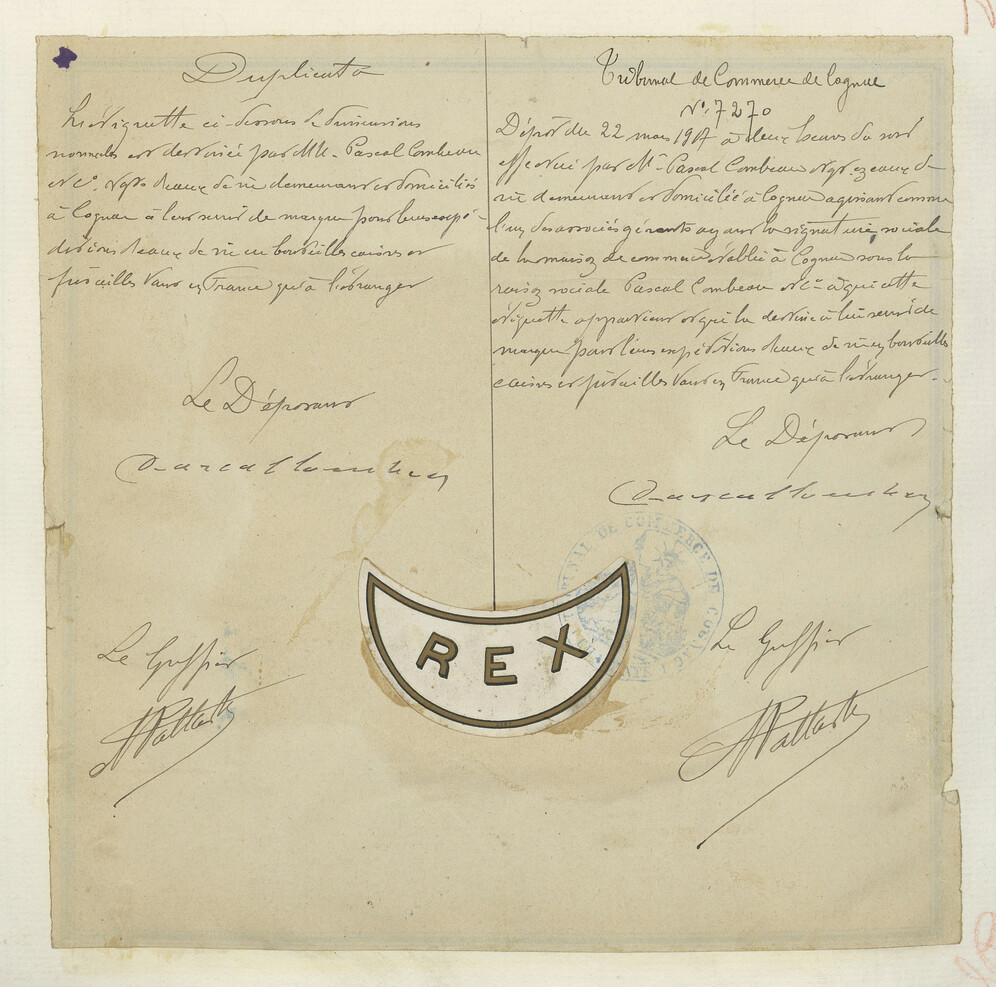 Duplicata
La Vignette ci-dessous de dimensions
normales est destinée par MM. Pascal Combeau
et Cie, Ngts d'eaux de vie demeurant et domiciliés
à Cognac à leur servir de marque pour leurs expé-
ditions d'eaux de vie en bouteilles caisses et
futailles tant en France qu'à l'étranger
Le Déposant
Pascal Combeau
Le Greffier
Tribunal de Commerce de Cognac
N° 7270
Dépôt du 22 mars à deux heures du soir
effectué par Mr Pascal Combeau Ngt en eaux de
vie demeurant et domicilié à Cognac agissant comme
l'un des associés gérants ayant la signature sociale
de la maison de commerce établie à Cognac sous la
raison sociale Pascal Combeau et Cie à qui cette
vignette appartient et qui la destine à lui servir de
marque pour leurs expéditions d'eaux de vie en bouteilles
caisses et futailles tant en France qu'à l'étranger.
Le Déposant
Pascal Combeau
TRIBUNAL DE COMMERCE DE COGNAC
REX
Le Greffier